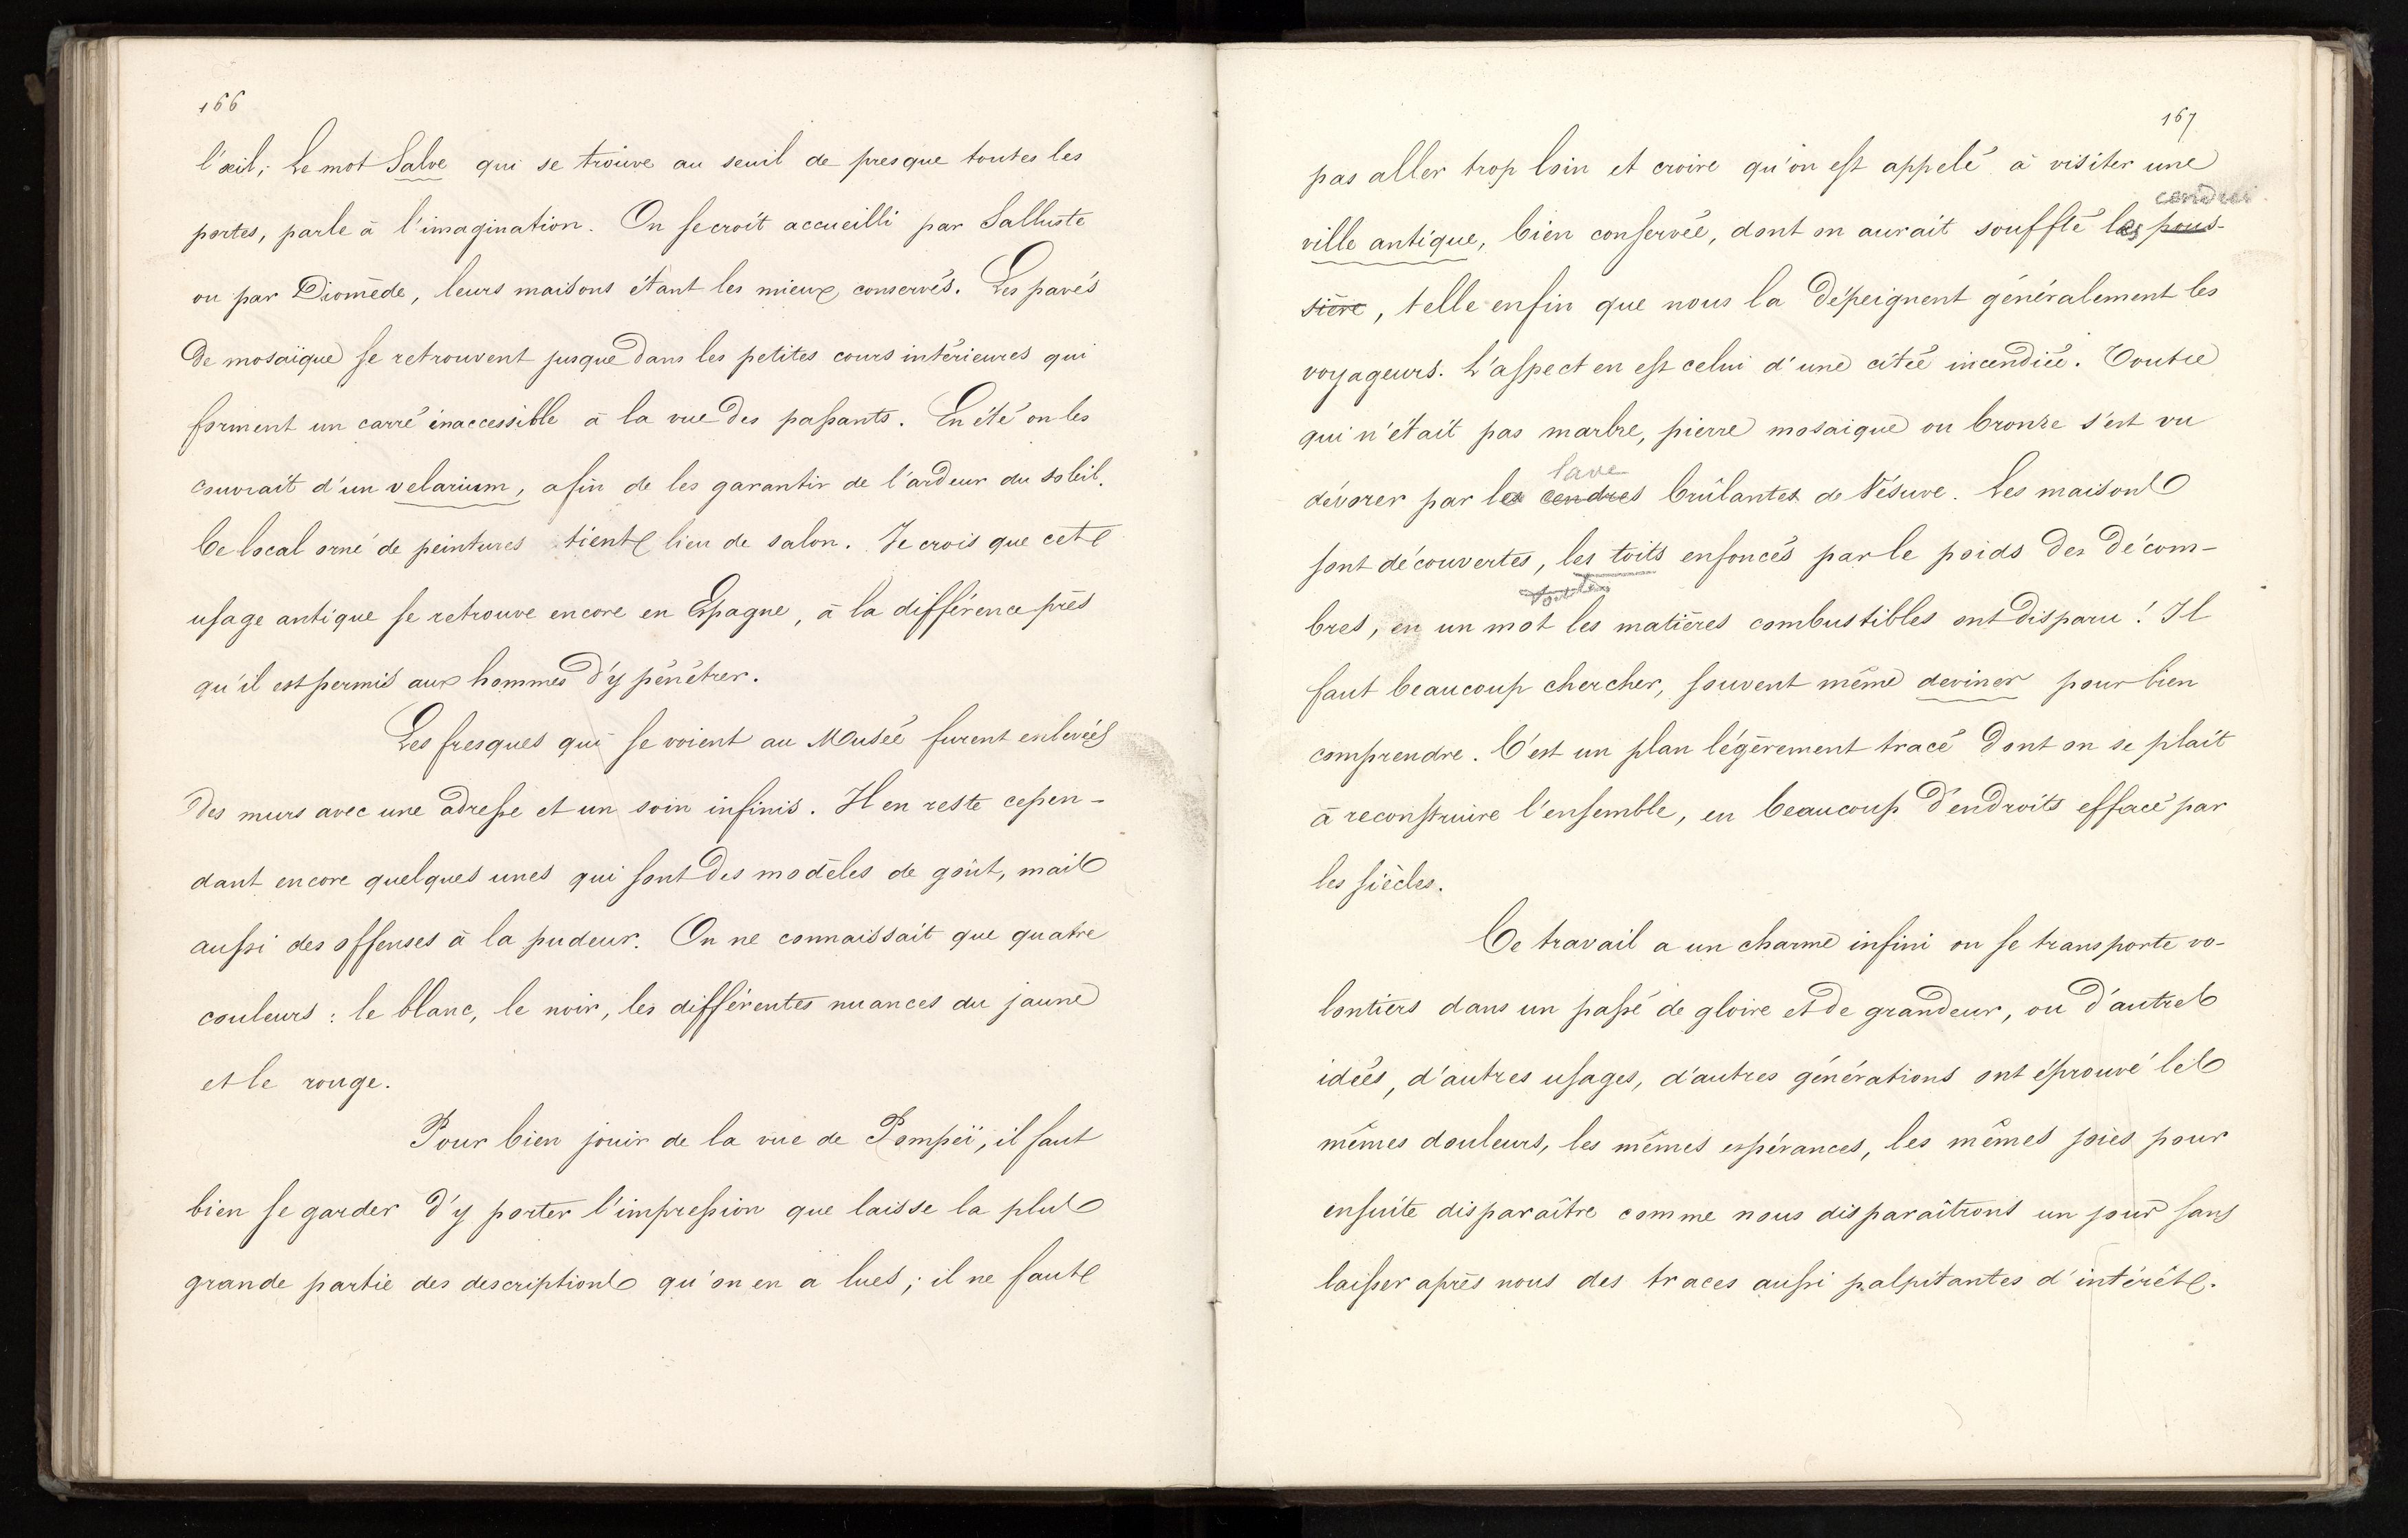 166
l'œil; Le mot Salve qui se trouve au seuil de presque toutes les
portes, parle à l'imagination. On se croit accueilli par Salluste
ou par Diomède, leurs maisons étant les mieux conservés. Les pavés
de mosaïque se retrouvent jusque dans les petites cours intérieures qui
forment un carré inaccessible à la vue des passants. En été on les
couvrait d'un velarium, afin de les garantir de l'ardeur du soleil.
Ce local orné de peintures tient lieu de salon. Je crois que cet
usage antique se retrouve encore en Espagne, à la différence près
qu'il est permis aux hommes d'y pénétrer.
Les fresques qui se voient au Musée furent enlevées
des murs avec une adresse et un soin infinis. Il en reste cepen-
dant encore quelques unes qui sont des modèles de goût, mais
aussi des offenses à la pudeur. On ne connaissait que quatre
couleurs : le blanc, le noir, les différentes nuances du jaune
et le rouge.
Pour bien jouir de la vue de Pompeï, il faut
bien se garder d'y porter l'impression que laisse la plus
grande partie des descriptions qu'on en a lues; il ne faut
167
pas aller trop loin et croire qu'on est appelé à visiter une
cendres
ville antique, bien conservée, dont on aurait soufflé les pous-
sière, telle enfin que nous la dépeignent généralement les
voyageurs. L'aspect en est celui d'une citée incendiée. Toutce
qui n'était pas marbre, pierre mosaique ou bronze s'est vu
lave
dévorer par la cendres brûlantes de Vésuve. Les maisons
sont découvertes, les toits enfoncés par le poids des décom-
bres, en un mot les matières combustibles ont disparu! Il
faut beaucoup chercher, souvent même deviner pour bien
comprendre. C'est un plan légèrement tracé dont on se plaît
à reconstruire l'ensemble, en beaucoup d'endroits effacé par
les siècles.
Ce travail a un charme infini on se transporte vo-
lontiers dans un passé de gloire et de grandeur, ou d'autres
idées, d'autres usages, d'autres générations ont éprouvé les
mêmes douleurs, les mêmes espérances, les mêmes joies pour
ensuite disparaître comme nous disparaîtrons un jour sans
laisser après nous des traces aussi palpitantes d'intérêt.